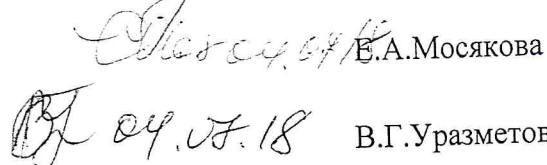 04.07.18 Е.А.Мосякова
04.07.18 В.Г.Уразметов